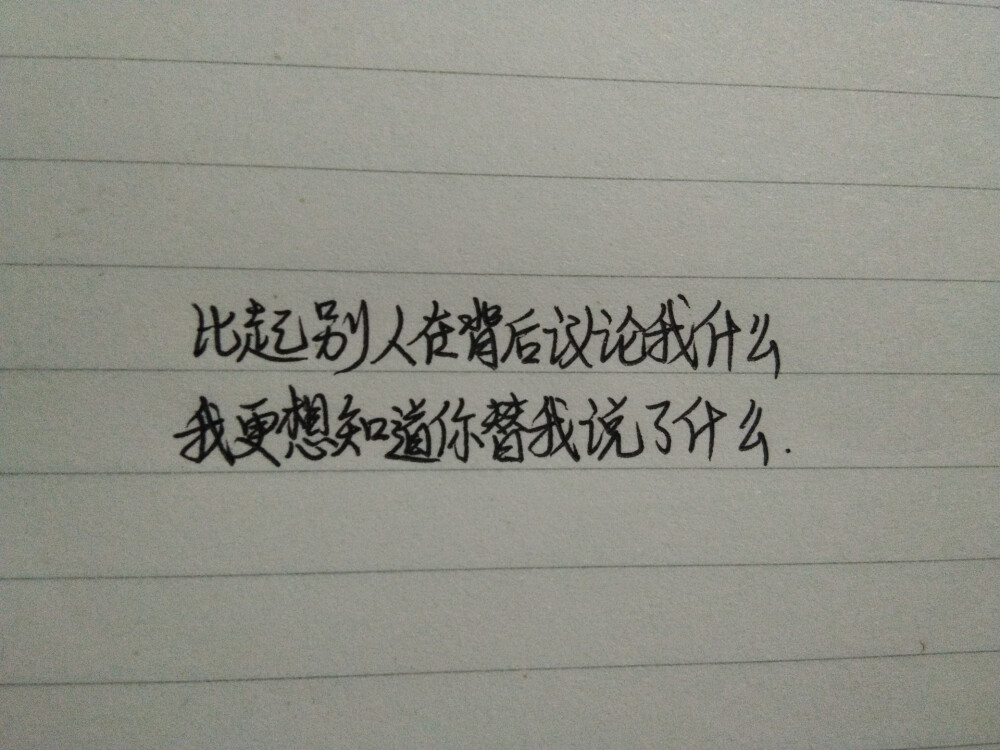 比起别人在背后议论我什么
我更想知道你替我说了什么.